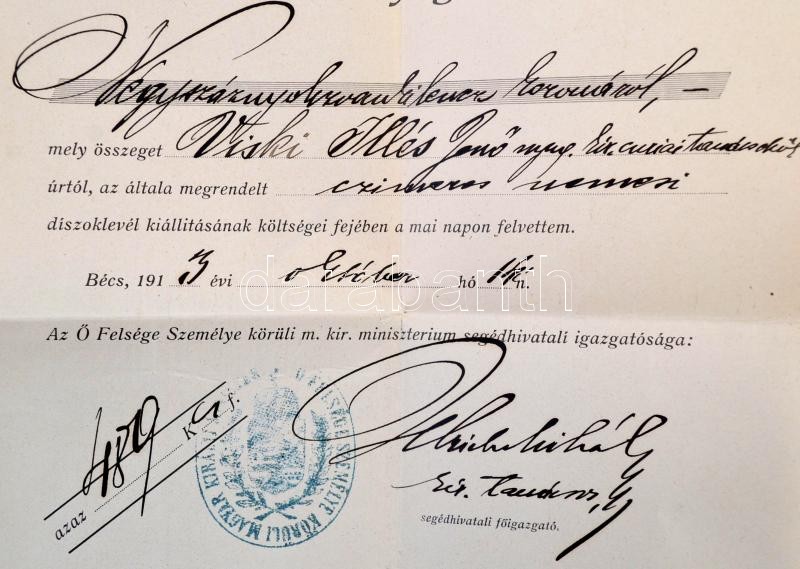 Négyszáznyolcvankilencz koronáról, –
mely összeget Viski Illés Jenő nyug. kir. curiai tanácselnök
úrtól, az általa megrendelt czimeres nemesi
díszoklevél kiállitásának költségei fejében a mai napon felvettem.
Bécs, 1913 évi október hó 14 n.
darabanth
Az Ő Felsége Személye körüli m. kir. miniszterium segédhivatali igazgatósága:
azaz 489 K f.
Mihály
kir. tanácsos,
segédhivatali főigazgató.
Ő FELSÉGE SZEMÉLYE KÖRÜLI MAGYAR KIRÁLYI